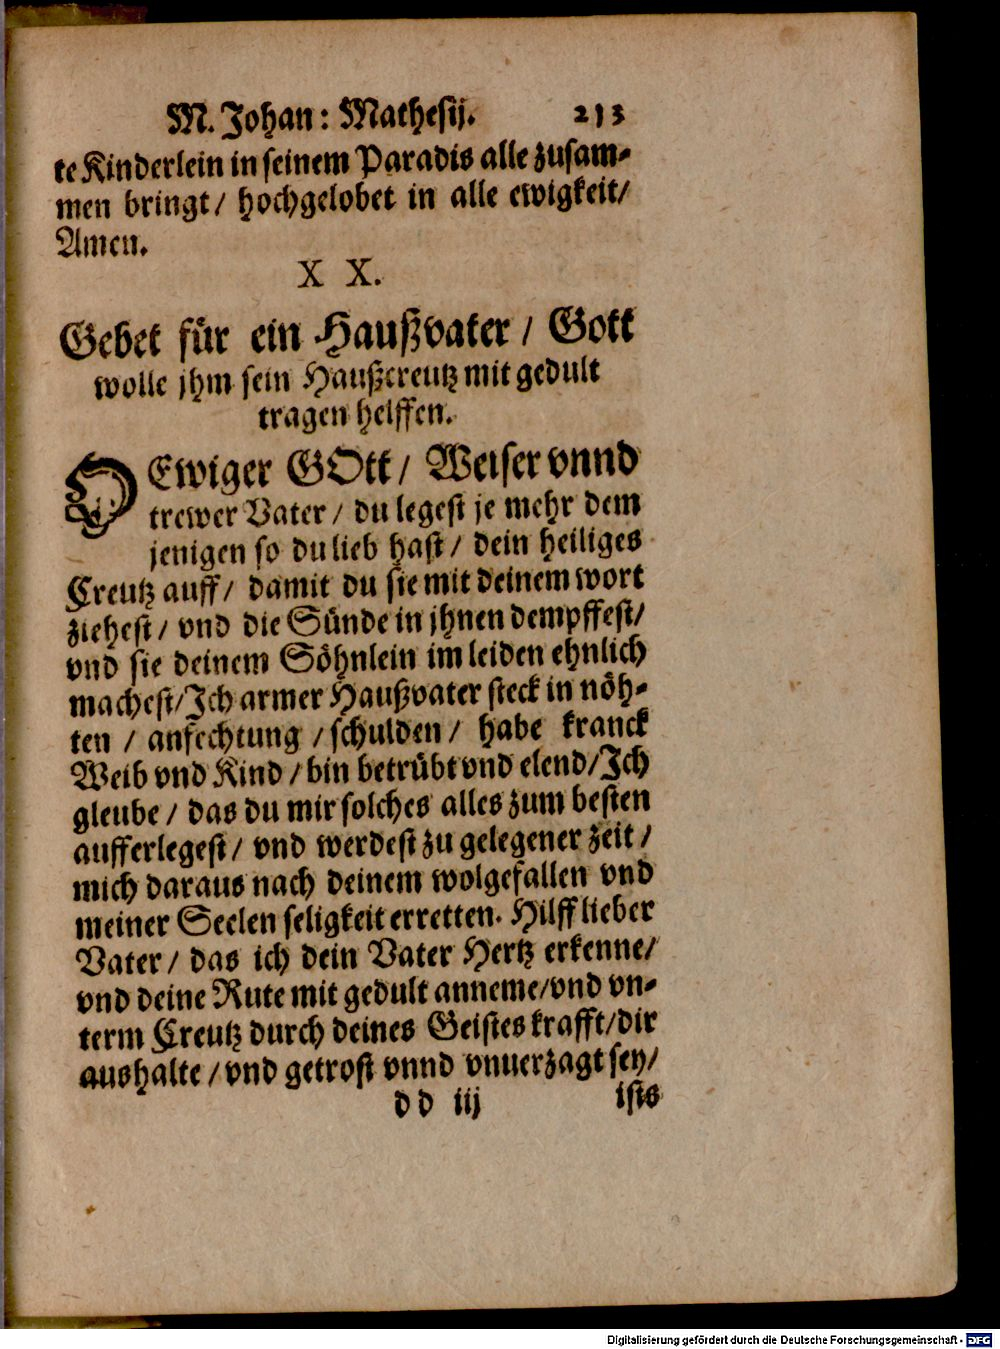 M. Johan: Mathesij. 213
te Kinderlein in seinem Paradis alle zusam-
men bringt / hochgelobet in alle ewigkeit /
Amen.
X X.
Gebet für ein Haußvater / Gott
wolle jhm sein Haußcreutz mit gedult
tragen helffen.
O Ewiger GOtt / Weiser vnnd
trewer Vater / du legest je mehr dem
jenigen so du lieb hast / dein heiliges
Creutz auff / damit du sie mit deinem wort
ziehest / vnd die Sünde in jhnen dempffest /
vnd sie deinem Söhnlein im leiden ehnlich
machest / Ich armer Haußvater steck in nöh-
ten / anfechtung / schulden / habe kranck
Weib vnd Kind / bin betrübt vnd elend / Ich
gleube / das du mir solches alles zum besten
aufferlegest / vnd werdest zu gelegener zeit /
mich daraus nach deinem wolgefallen vnd
meiner Seelen seligkeit erretten. Hilff lieber
Vater / das ich dein Vater Hertz erkenne /
vnd deine Rute mit gedult anneme / vnd vn-
term Creutz durch deines Geistes krafft / dir
aushalte / vnd getrost vnnd vnuerzagt sey /
dd iij ists
Digitalisierung gefördert durch die Deutsche Forschungsgemeinschaft - DFG